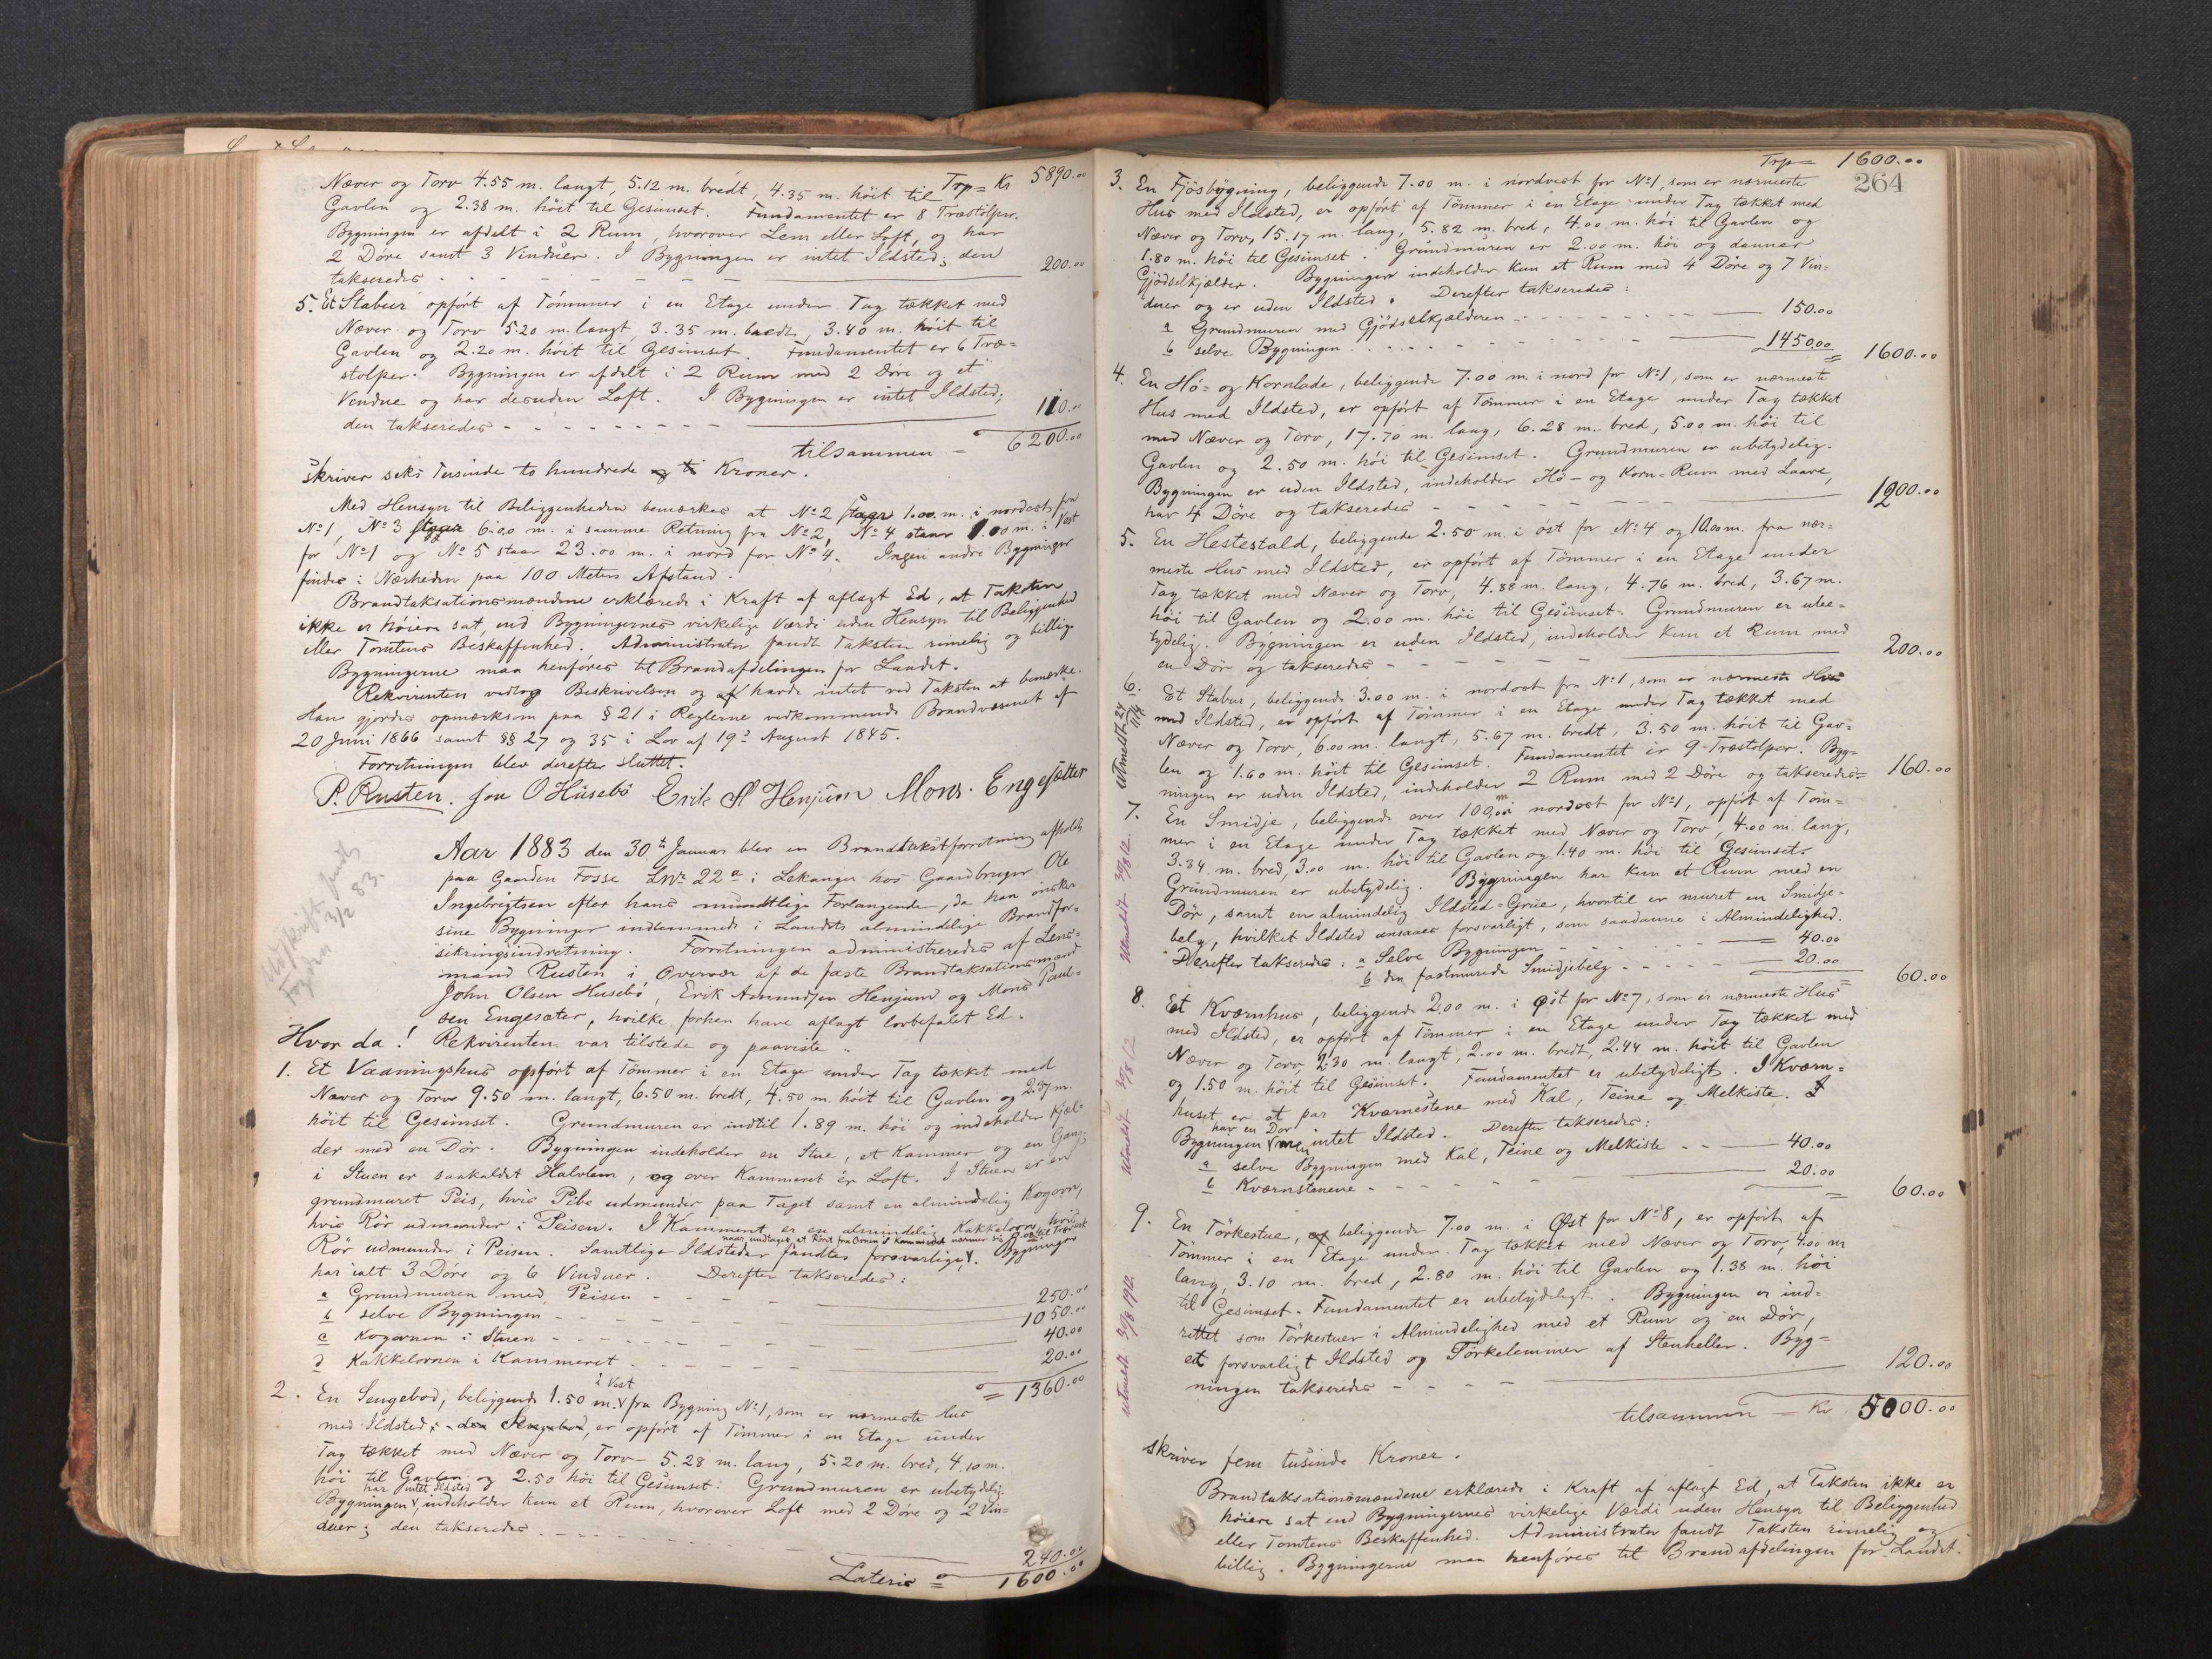 Trp = Kr 5890.00
Næver og Torv 4.55 m. langt, 5.12 m. bredt, 4.35 m. höit til
Gavlen og 2.38 m. höit til Gesimset. Fundamentet er 8 Træstolper.
Bygningen er afdelt i 2 Rum, hvorover Lem eller Loft, og har
2 Döre samt 3 Vinduer. I Bygningen er intet Ildsted; den
takseredes - - - 200.00
5. Et Stabur opfört af Tömmer i en Etage under Tag tækket med
Næver og Torv 5.20 m. langt, 3.35 m. bredt, 3.40 m. höit til
Gavlen og 2.20 m. höit til Gesimset. Fundamentet er 6 Træ=
stolper. Bygningen er afdelt i 2 Rum med 2 Döre og et
Vindue og har desuden Loft. I Bygningen er intet Ildsted;
den takseredes - - - 110.00
tilsammen = 6200.00
skriver seks Tusinde to hundrede og ti Kroner.
Med Hensyn til Beliggenheden bemærkes at No 2 staar 1.00 m. i nordost fra
No 1, No 3 staar 6.00 m. i samme Retning fra No 2, No 4 staar 1.00 m. i Vest
for No 1 og No 5 staar 23.00 m. i nord for No 4. Ingen andre Bygninger
findes i Nærheden paa 100 Meters Afstand.
Brandtaksationsmændene erklærede i Kraft af aflagt Ed, at Taksten
ikke er höiere sat, end Bygningernes virkelige Værdi uden Hensyn til Beliggenhed
eller Tomtens Beskaffenhed. Administrator fandt Taksten rimelig og billig.
Bygningerne maa henföres til Brandafdelingen for Landet.
Rekvirenten vedtog Beskrivelsen og af havde intet ved Taksten at bemærke.
Han gjordes opmærksom paa § 21 i Reglerne vedkommende Brandvæsenet af
20 Juni 1866 samt §§ 27 og 35 i Lov af 19de August 1845.
Forretningen blev derefter sluttet.
P. Rusten. Jon O Húsebö Erik A Henjúm Mons. Engesætter
Aar 1883 den 30te Januar blev en Brandtakstforretning afholdt
paa Gaarden Fosse LNr 22a i Lekanger hos Gaardbruger Ole
Ingebrigtsen efter hans mundtlige Forlangende, da han önsker
sine Bygninger indlemmede i Landets almindelige Brandfor=
sikringsindretning. Forretningen administreredes af Lens=
mand Rusten i Overvær af de faste Brandtaksationsmænd
John Olsen Husebö, Erik Amundsen Henjum og Mons Paul=
sen Engesæter, hvilke forhen have aflagt lovbefalet Ed.
Udskrift sendt
Fogden 3/2 83.
Hvor da! Rekvirenten var tilstede og paaviste:
1. Et Vaaningshus opfört af Tömmer i en Etage under Tag tækket med
Næver og Torv 9.50 m. langt, 6.50 m. bredt, 4.50 m. höit til Gavlen og 2.87 m.
höit til Gesimset. Grundmuren er indtil 1.89 m. höi og indeholder Kjæl=
der med en Dör. Bygningen indeholder en Stue, et Kammer og en Gang;
i Stuen er saakaldet Halvlem, og over Kammeret er Loft. I Stuen er en
grundmuret Peis, hvis Pibe udmunder paa Taget samt en almindelig Kogovn,
hvis Rör udmunder i Peisen. I Kammeret er en almindelig Kakkelovn, hvis
Rör udmunder i Peisen. Samtlige Ildsteder fandtes forsvarlige. Bygningen
har ialt 3 Döre og 6 Vinduer. Derefter takseredes:
a Grundmuren med Peisen - - - 250.00
b selve Bygningen - - - 1050.00
c Kogovnen i Stuen - - - 40.00
d Kakkelovnen i Kammeret - - - 20.00
= 1360.00
2. En Sengebod, beliggende 1.50 m. i Vest fra Bygning No 1, som er nærmeste Hus
med Ildsted; den Sengebod er opfört af Tömmer i en Etage under
Tag tækket med Næver og Torv - 5.28 m. lang, 5.20 m. bred, 4.10 m.
höi til Gavlen og 2.50 höi til Gesimset. Grundmuren er ubetydelig.
Bygningen har intet Ildsted, indeholder kun et Rum, hvorover Loft med 2 Döre og 2 Vin=
duer; den takseredes - - - 240.00
Lateris = 1600.00
Trp = 1600.00
264
3. En Fjösbygning, beliggende 7.00 m. i nordvest for No 1, som er nærmeste
Hus med Ildsted, er opfört af Tömmer i en Etage under Tag tækket med
Næver og Torv, 15.17 m. lang, 5.82 m. bred, 4.00 m. höi til Gavlen og
1.80 m. höi til Gesimset. Grundmuren er 2.00 m. höi og danner
Gjödselkjælder. Bygningen indeholder kun et Rum med 4 Döre og 7 Vin=
duer og er uden Ildsted. Derefter takseredes:
a Grundmuren med Gjödselkjælderen - - - 150.00
b selve Bygningen - - - 1450.00 = 1600.00
4. En Hö= og Kornlade, beliggende 7.00 m. i nord for No 1, som er nærmeste
Hus med Ildsted, er opfört af Tömmer i en Etage under Tag tækket
med Næver og Torv, 17.70 m. lang, 6.28 m. bred, 5.00 m. höi til
Gavlen og 2.50 m. höi til Gesimset. Grundmuren er ubetydelig.
Bygningen er uden Ildsted, indeholder Hö- og Korn=Rum med Laave,
har 4 Döre og takseredes - - - 1200.00
5. En Hestestald, beliggende 2.50 m. i öst for No 4 og 10.00 m. fra nær=
meste Hus med Ildsted, er opfört af Tömmer i en Etage under
Tag tækket med Næver og Torv, 4.88 m. lang, 4.76 m. bred, 3.67 m.
höi til Gavlen og 2.00 m. höi til Gesimset. Grundmuren er ube=
tydelig. Bygningen er uden Ildsted, indeholder kun et Rum med
en Dör og takseredes - - - 200.00
6. Et Stabur, beliggende 3.00 m. i nordost fra No 1, som er nærmeste Hus
med Ildsted, er opfört af Tömmer i en Etage under Tag tækket med
Næver og Torv, 6.00 m. langt, 5.67 m. bredt, 3.50 m. höit til Gav=
len og 1.60 m. höit til Gesimset. Fundamentet er 9 Træstolper. Byg=
ningen er uden Ildsted, indeholder 2 Rum med 2 Döre og takseredes = 160.00
7. En Smidje, beliggende over 100,00 m nordost for No 1, opfört af Töm=
mer i en Etage under Tag tækket med Næver og Torv, 4.00 m. lang,
3.34 m. bred, 3.00 m. höi til Gavlen og 1.40 m. höi til Gesimset.
Grundmuren er ubetydelig. Bygningen har kun et Rum med en
Dör, samt en almindelig Ildsted=Grue, hvortil er muret en Smidje=
belg, hvilket Ildsted ansaaes forsvarligt, som saadanne i Almindelighed.
Derefter takseredes: a Selve Bygningen - - - 40.00
b den fastmurede Smidjebelg - - - 20.00 = 60.00
Utmeldt 30/8 12.
8. Et Kværnhus, beliggende 2.00 m. i Öst for No 7, som er nærmeste Hus
med Ildsted, er opfört af Tömmer i en Etage under Tag tækket med
Næver og Torv 2.30 m. langt, 2.00 m. bredt, 2.44 m. höit til Gavlen
og 1.50 m. höit til Gesimset. Fundamentet er ubetydeligt. I Kværn=
huset er et par Kværnestene med Kal, Teine og Melkiste. I
Bygningen har en Dör men intet Ildsted. Derefter takseredes:
a selve Bygningen med Kal, Teine og Melkiste - - 40.00
b Kværnstenene - - - 20.00 = 60.00
Utmeldt 30/8 12
9. En Törkestue, beliggende 7.00 m. i Øst for No 8, er opfört af
Tömmer i en Etage under Tag tækket med Næver og Torv, 4.00 m
lang, 3.10 m. bred, 2.80 m. höi til Gavlen og 1.38 m. höi
til Gesimset. Fundamentet er ubetydeligt. Bygningen er ind=
rettet som Törkestuer i Almindelighed med et Rum og en Dör,
et forsvarligt Ildsted og Törkelemmer af Stenheller. Byg=
ningen takseredes - - - 120.00
utmeldt 30/8 1912.
tilsammen = Kr 5000.00
skriver fem tusinde Kroner.
Brandtaksationsmændene erklærede i Kraft af aflagt Ed, at Taksten ikke er
höiere sat end Bygningernes virkelige Værdi uden Hensyn til Beliggenhed
eller Tomtens Beskaffenhed. Administrator fandt Taksten rimelig og
billig. Bygningerne maa henföres til Brandafdelingen for Landet.